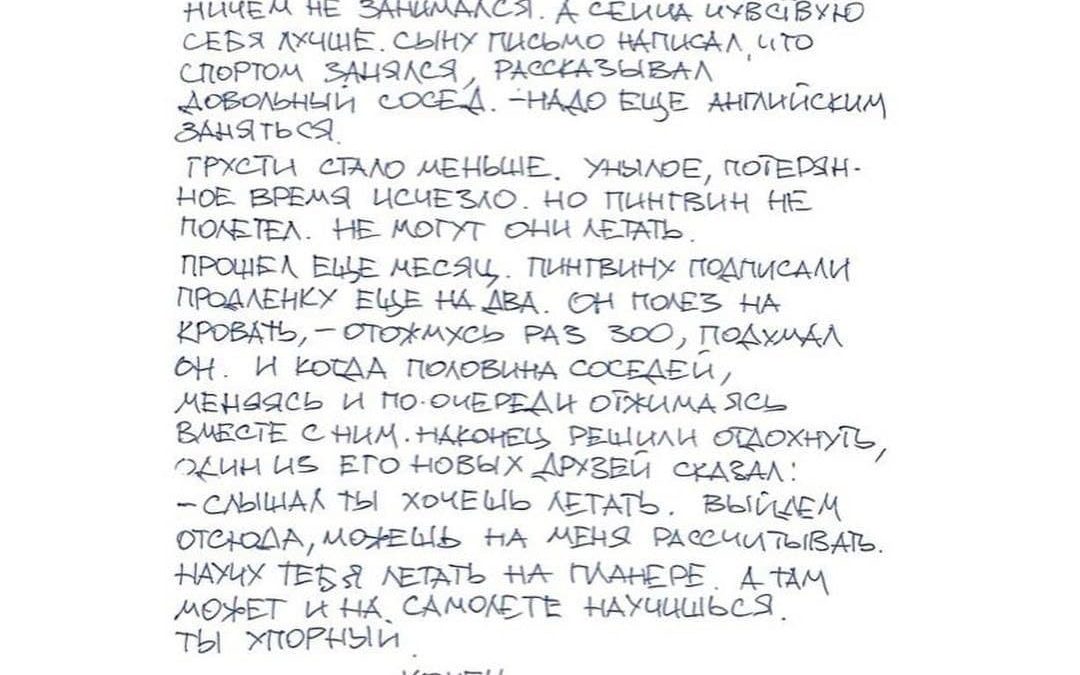 НИЧЕМ НЕ ЗАНИМАЛСЯ. А СЕЙЧА ЧУВСТВУЮ
СЕБЯ ЛУЧШЕ. СЫНУ ПИСЬМО НАПИСАЛ, ЧТО
СПОРТОМ ЗАНЯЛСЯ, РАССКАЗЫВАЛ
ДОВОЛЬНЫЙ СОСЕД. – НАДО ЕЩЕ АНГЛИЙСКИМ
ЗАНЯТЬСЯ.
ГРУСТИ СТАЛО МЕНЬШЕ. УНЫЛОЕ, ПОТЕРЯН-
НОЕ ВРЕМЯ ИСЧЕЗЛО. НО ПИНГВИН НЕ
ПОЛЕТЕЛ. НЕ МОГУТ ОНИ ЛЕТАТЬ.
ПРОШЕЛ ЕЩЕ МЕСЯЦ. ПИНГВИНУ ПОДПИСАЛИ
ПРОДЛЕНКУ ЕЩЕ НА ДВА. ОН ПОЛЕЗ НА
КРОВАТЬ, – ОТОЖМУСЬ РАЗ 300, ПОДУМАЛ
ОН. И КОГДА ПОЛОВИНА СОСЕДЕЙ,
МЕНЯЯСЬ И ПО-ОЧЕРЕДИ ОТЖИМАЯСЬ
ВМЕСТЕ С НИМ. НАКОНЕЦ РЕШИЛИ ОТДОХНУТЬ,
ОДИН ИЗ ЕГО НОВЫХ ДРУЗЕЙ СКАЗАЛ:
– СЛЫШАЛ ТЫ ХОЧЕШЬ ЛЕТАТЬ. ВЫЙДЕМ
ОТСЮДА, МОЖЕШЬ НА МЕНЯ РАССЧИТЫВАТЬ.
НАУЧУ ТЕБЯ ЛЕТАТЬ НА ПЛАНЕРЕ. А ТАМ
МОЖЕТ И НА САМОЛЕТЕ НАУЧИШЬСЯ.
ТЫ УПОРНЫЙ.